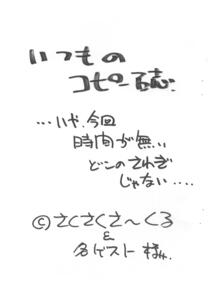 いつもの
コピー誌.
…いや、今回
時間が無い
どこのさわぎ
じゃない....
©さくさくさ〜くる
&
名ゲスト様